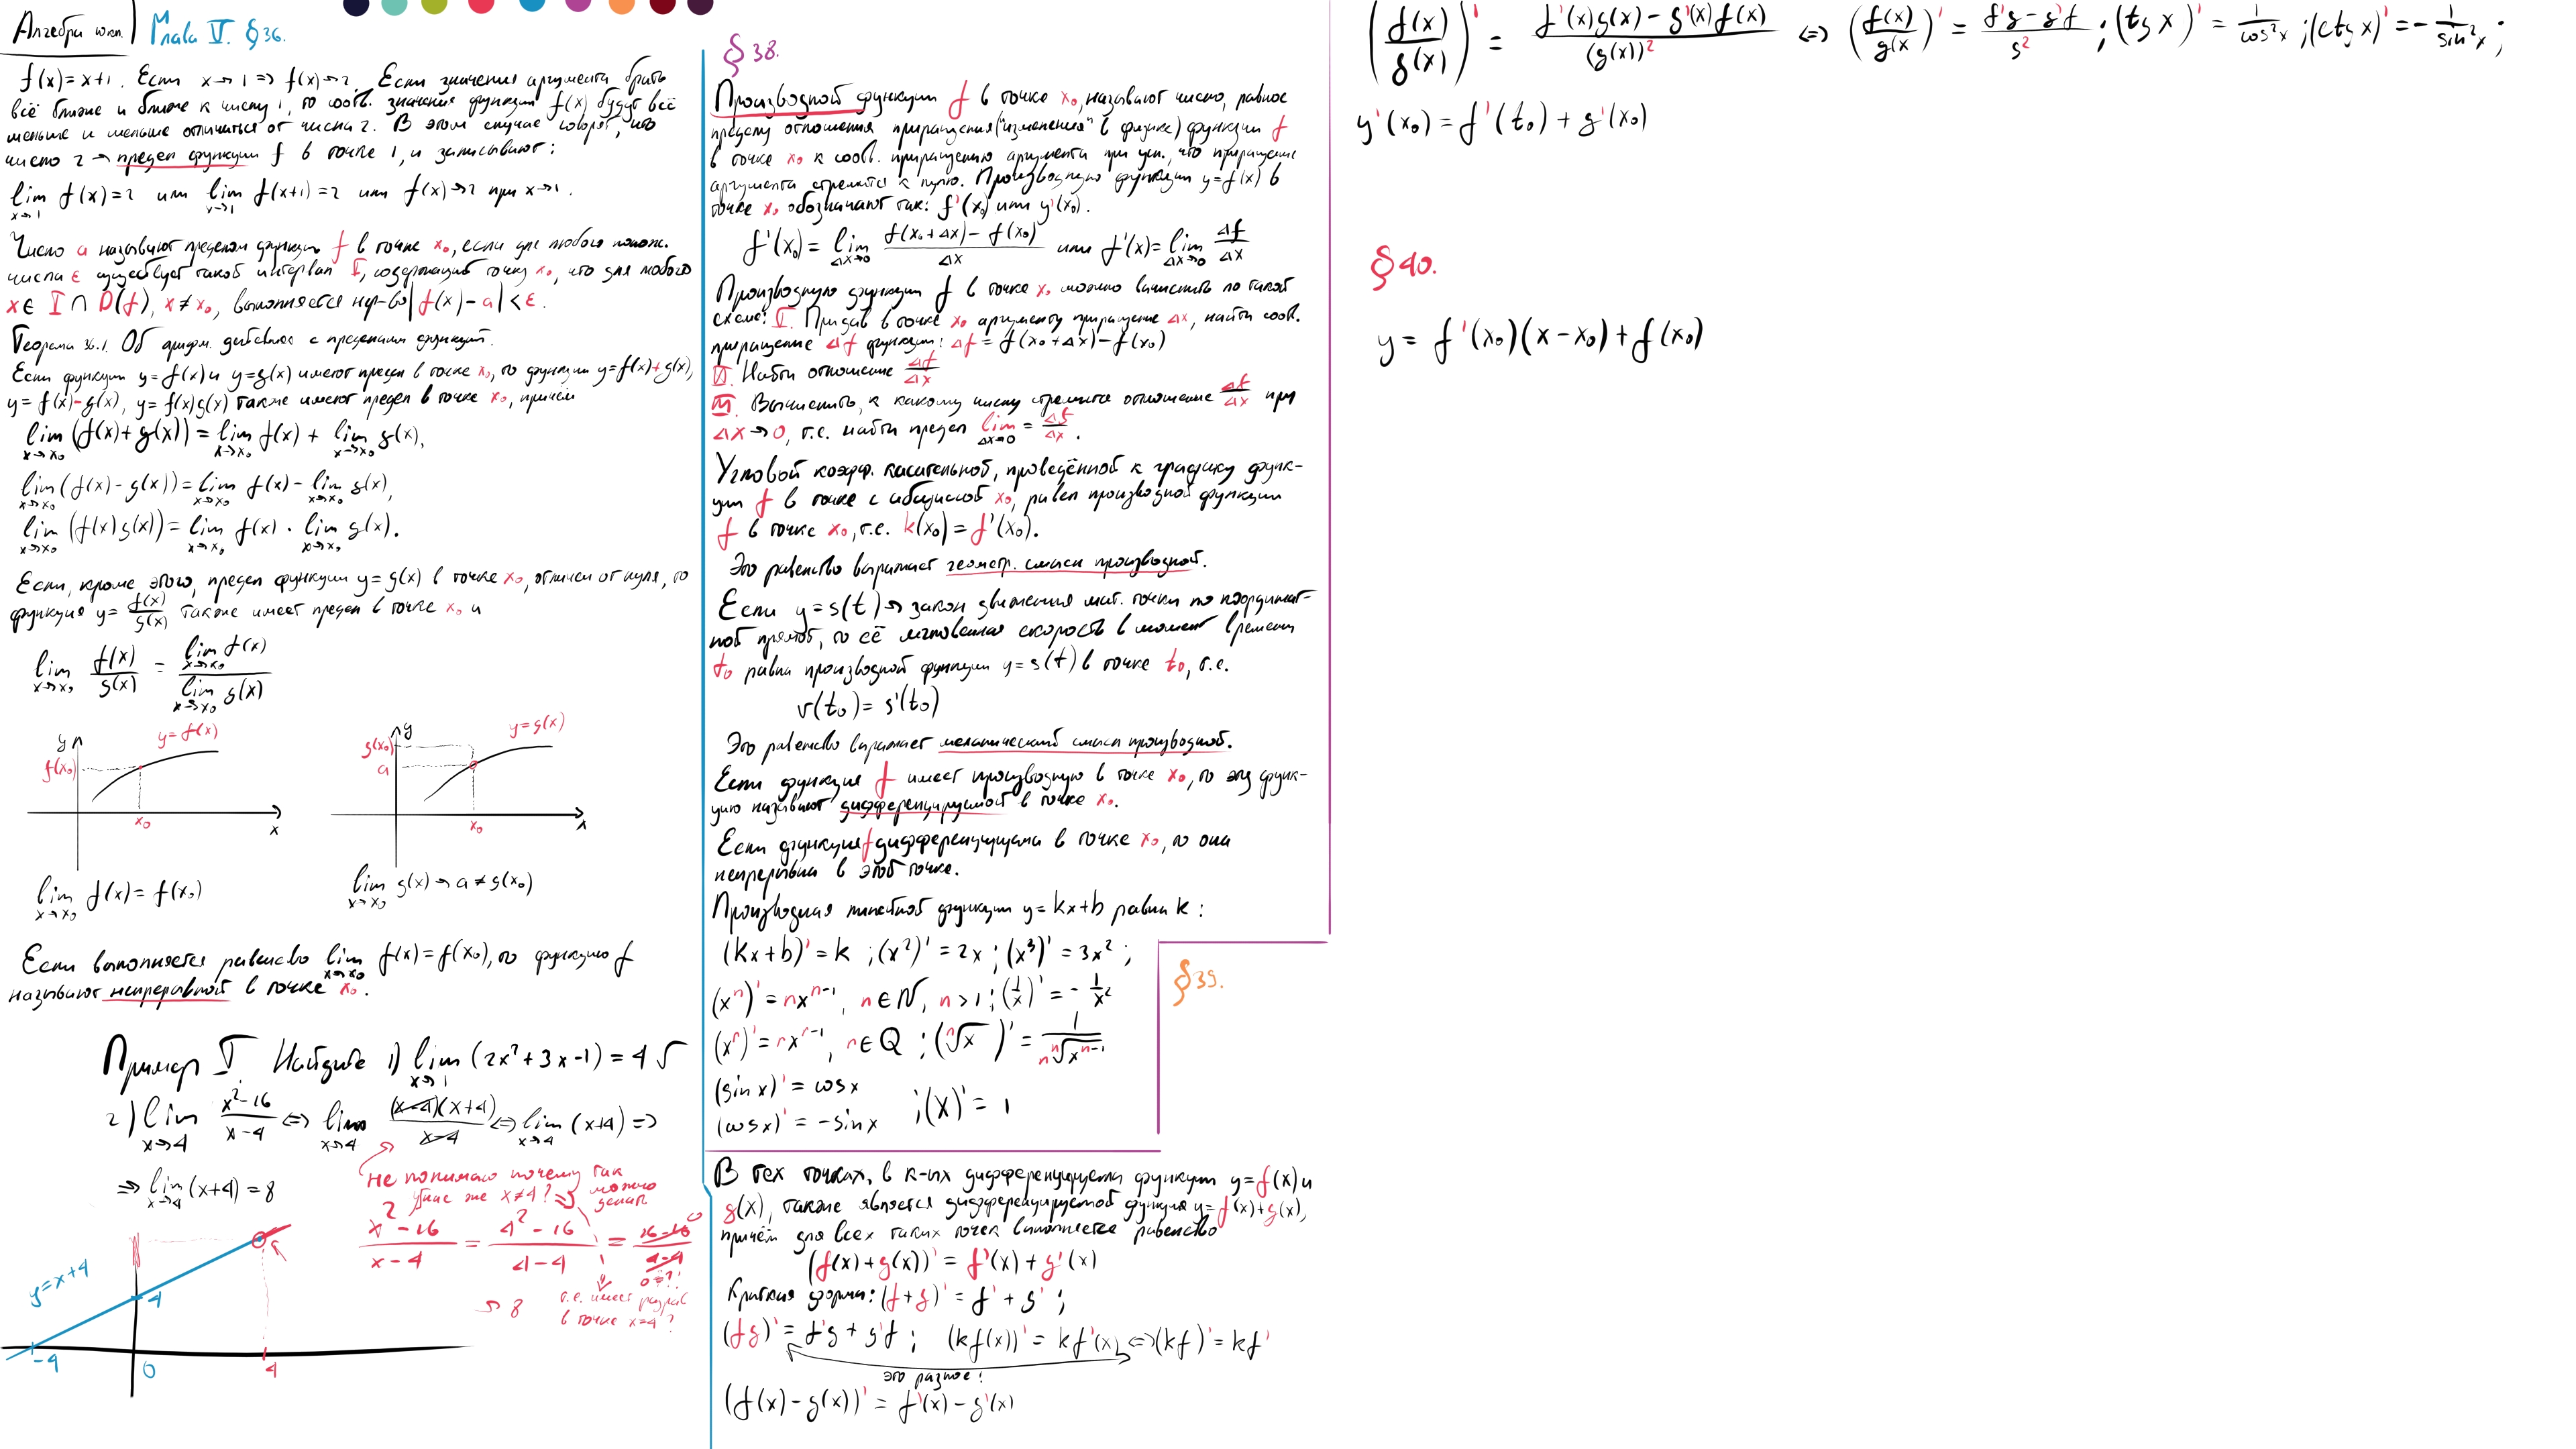 Алгебра
Глава V. §36.
f(x)=x+1. Если x→1 => f(x)→2. Если значения аргумента брать
всё ближе и ближе к числу 1, то соотв. значения функции f(x) будут всё
меньше и меньше отличаться от числа 2. В этом случае говорят, что
число 2 → предел функции f в точке 1, и записывают:
lim x→1 f(x)=2 или lim x→1 f(x+1)=2 или f(x)→2 при x→1.
Число a называют пределом функции f в точке x₀, если для любого полож.
числа ε существует такой интервал I, содержащий точку x₀, что для любого
x∈ I ∩ D(f), x≠x₀, выполняется нер-во |f(x)-a|<ε.
Теорема 36.1. Об арифм. действиях с пределами функций.
Если функции y=f(x) и y=g(x) имеют предел в точке x₀, то функции y=f(x)+g(x),
y=f(x)-g(x), y=f(x)g(x) также имеют предел в точке x₀, причём
lim x→x₀ (f(x)+g(x)) = lim x→x₀ f(x) + lim x→x₀ g(x),
lim x→x₀ (f(x)-g(x)) = lim x→x₀ f(x) - lim x→x₀ g(x),
lim x→x₀ (f(x)g(x)) = lim x→x₀ f(x) · lim x→x₀ g(x).
Если, кроме этого, предел функции y=g(x) в точке x₀, отличен от нуля, то
функция y= f(x)/g(x) также имеет предел в точке x₀ и
lim x→x₀ f(x)/g(x) = lim x→x₀ f(x) / lim x→x₀ g(x)
y y=f(x)
f(x₀)
x₀ x
lim x→x₀ f(x)=f(x₀)
y y=g(x)
g(x₀)
a
x₀ x
lim x→x₀ g(x)→a≠g(x₀)
Если выполняется равенство lim x→x₀ f(x)=f(x₀), то функцию f
называют непрерывной в точке x₀.
Пример I. Найдите 1) lim x→1 (2x²+3x-1)=4
2) lim x→4 x²-16/x-4 <=> lim x→4 (x-4)(x+4)/x-4 <=> lim x→4 (x+4) =>
=> lim x→4 (x+4)=8
не понимаю почему так
можно
делать
же x≠4? =>
?
x²-16/x-4 = 4²-16/4-4 = 16-16/4-4
0 ?!
→ 8
т.е. имеет разрыв
в точке x=4?
y=x+4
4
-4 0 4
§38.
Производной функции f в точке x₀, называют число, равное
пределу отношения приращения ("изменения" в физике) функции f
в точке x₀ к соотв. приращению аргумента при усл., что приращение
аргумента стремится к нулю. Производную функции y=f(x) в
точке x₀ обозначают так: f'(x₀) или y'(x₀).
f'(x₀)= lim Δx→0 f(x₀+Δx)-f(x₀)/Δx или f'(x)= lim Δx→0 Δf/Δx
Производную функции f в точке x₀ можно вычислить по такой
схеме: I. Придав в точке x₀ аргументу приращение Δx, найти соотв.
приращение Δf функции: Δf = f(x₀+Δx)-f(x₀)
II. Найти отношение Δf/Δx
III. Вычислить, к какому числу стремится отношение Δf/Δx при
Δx→0, т.е. найти предел lim Δx→0 = Δf/Δx.
Угловой коэфф. касательной, проведённой к графику функ-
ции f в точке с абсциссой x₀, равен производной функции
f в точке x₀, т.е. k(x₀)=f'(x₀).
Это равенство выражает геометр. смысл производной.
Если y=s(t) → закон движения мат. точки по координат-
ной прямой, то её мгновенная скорость в момент времени
t₀ равна производной функции y=s(t) в точке t₀, т.е.
v(t₀)=s'(t₀)
Это равенство выражает механический смысл производной.
Если функция f имеет производную в точке x₀, то эту функ-
цию называют дифференцируемой в точке x₀.
Если функция f дифференцируема в точке x₀, то она
непрерывна в этой точке.
Производная линейной функции y=kx+b равна k:
(kx+b)'=k ; (x²)'=2x ; (x³)'=3x² ;
(xⁿ)'=nxⁿ⁻¹, n∈N, n>1 ; (1/x)'=-1/x²
(xʳ)'=rxʳ⁻¹, r∈Q ; (ⁿ√x)'= 1/n ⁿ√xⁿ⁻¹
(sin x)'=cos x
(cos x)'=-sin x ; (x)'=1
§39.
В тех точках, в к-ых дифференцируемы функции y=f(x) и
g(x), также является дифференцируемой функция y=f(x)+g(x),
причём для всех таких точек выполняется равенство
(f(x)+g(x))'=f'(x)+g'(x)
Краткая форма: (f+g)'=f'+g' ;
(fg)'=f'g+g'f ; (kf(x))'=kf'(x) <=> (kf)'=kf'
это разное!
(f(x)-g(x))'=f'(x)-g'(x)
(f(x)/g(x))' = f'(x)g(x)-g'(x)f(x)/(g(x))² <=> (f(x)/g(x)' = f'g-g'f/g² ; (tg x)'=1/cos²x ; (ctg x)'=-1/sin²x ;
y'(x₀)=f'(t₀)+g'(x₀)
§40.
y=f'(x₀)(x-x₀)+f(x₀)